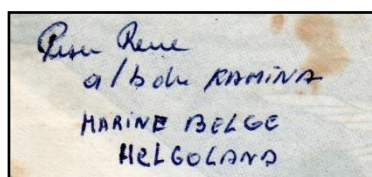 Rene
a/b du KAMINA
MARINE BELGE
HELGOLAND